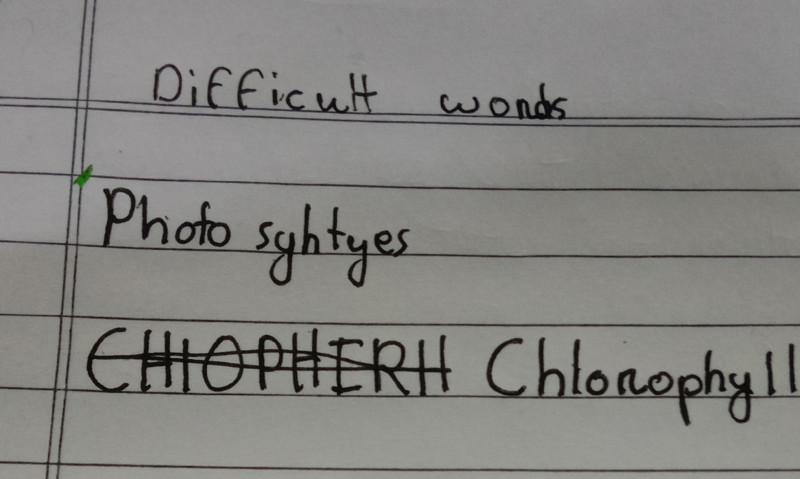 Difficult words
Photo syhtyes
CHIOPHERH Chlorophyll